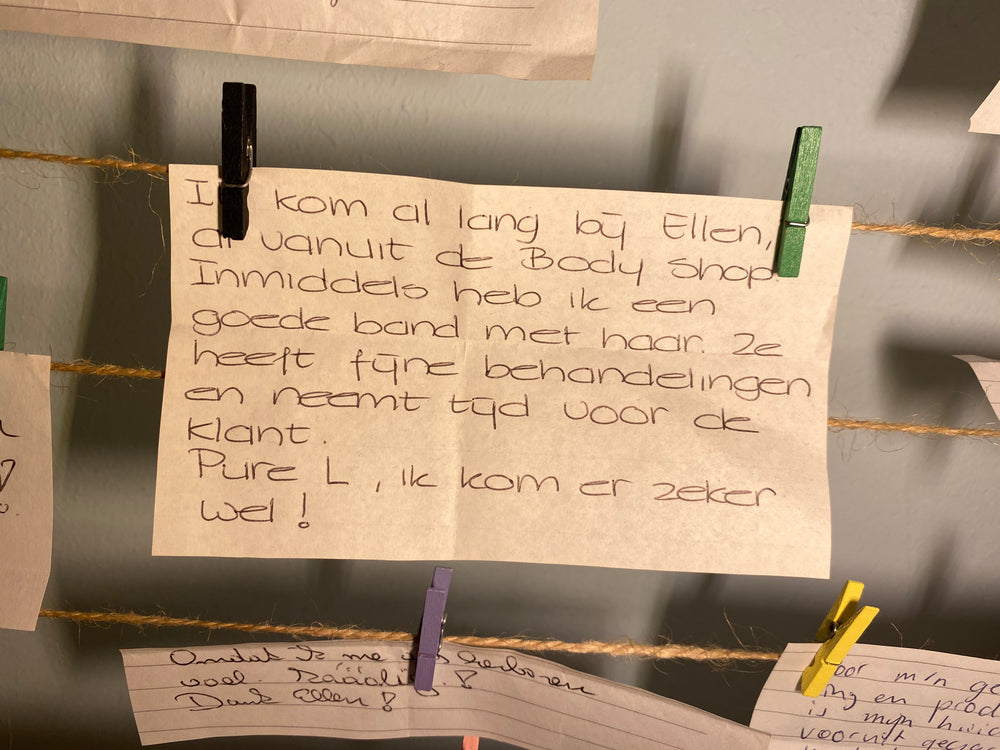 I kom al lang bij Ellen,
al vanuit de Body Shop.
Inmiddels heb ik een
goede band met haar. Ze
heeft fijne behandelingen
en neemt tijd voor de
klant.
Pure L, ik kom er zeker
wel!
Omdat Ik me herboren
voel.
Dank Ellen!
m'n
ing en prod
is mijn huid
vooruit